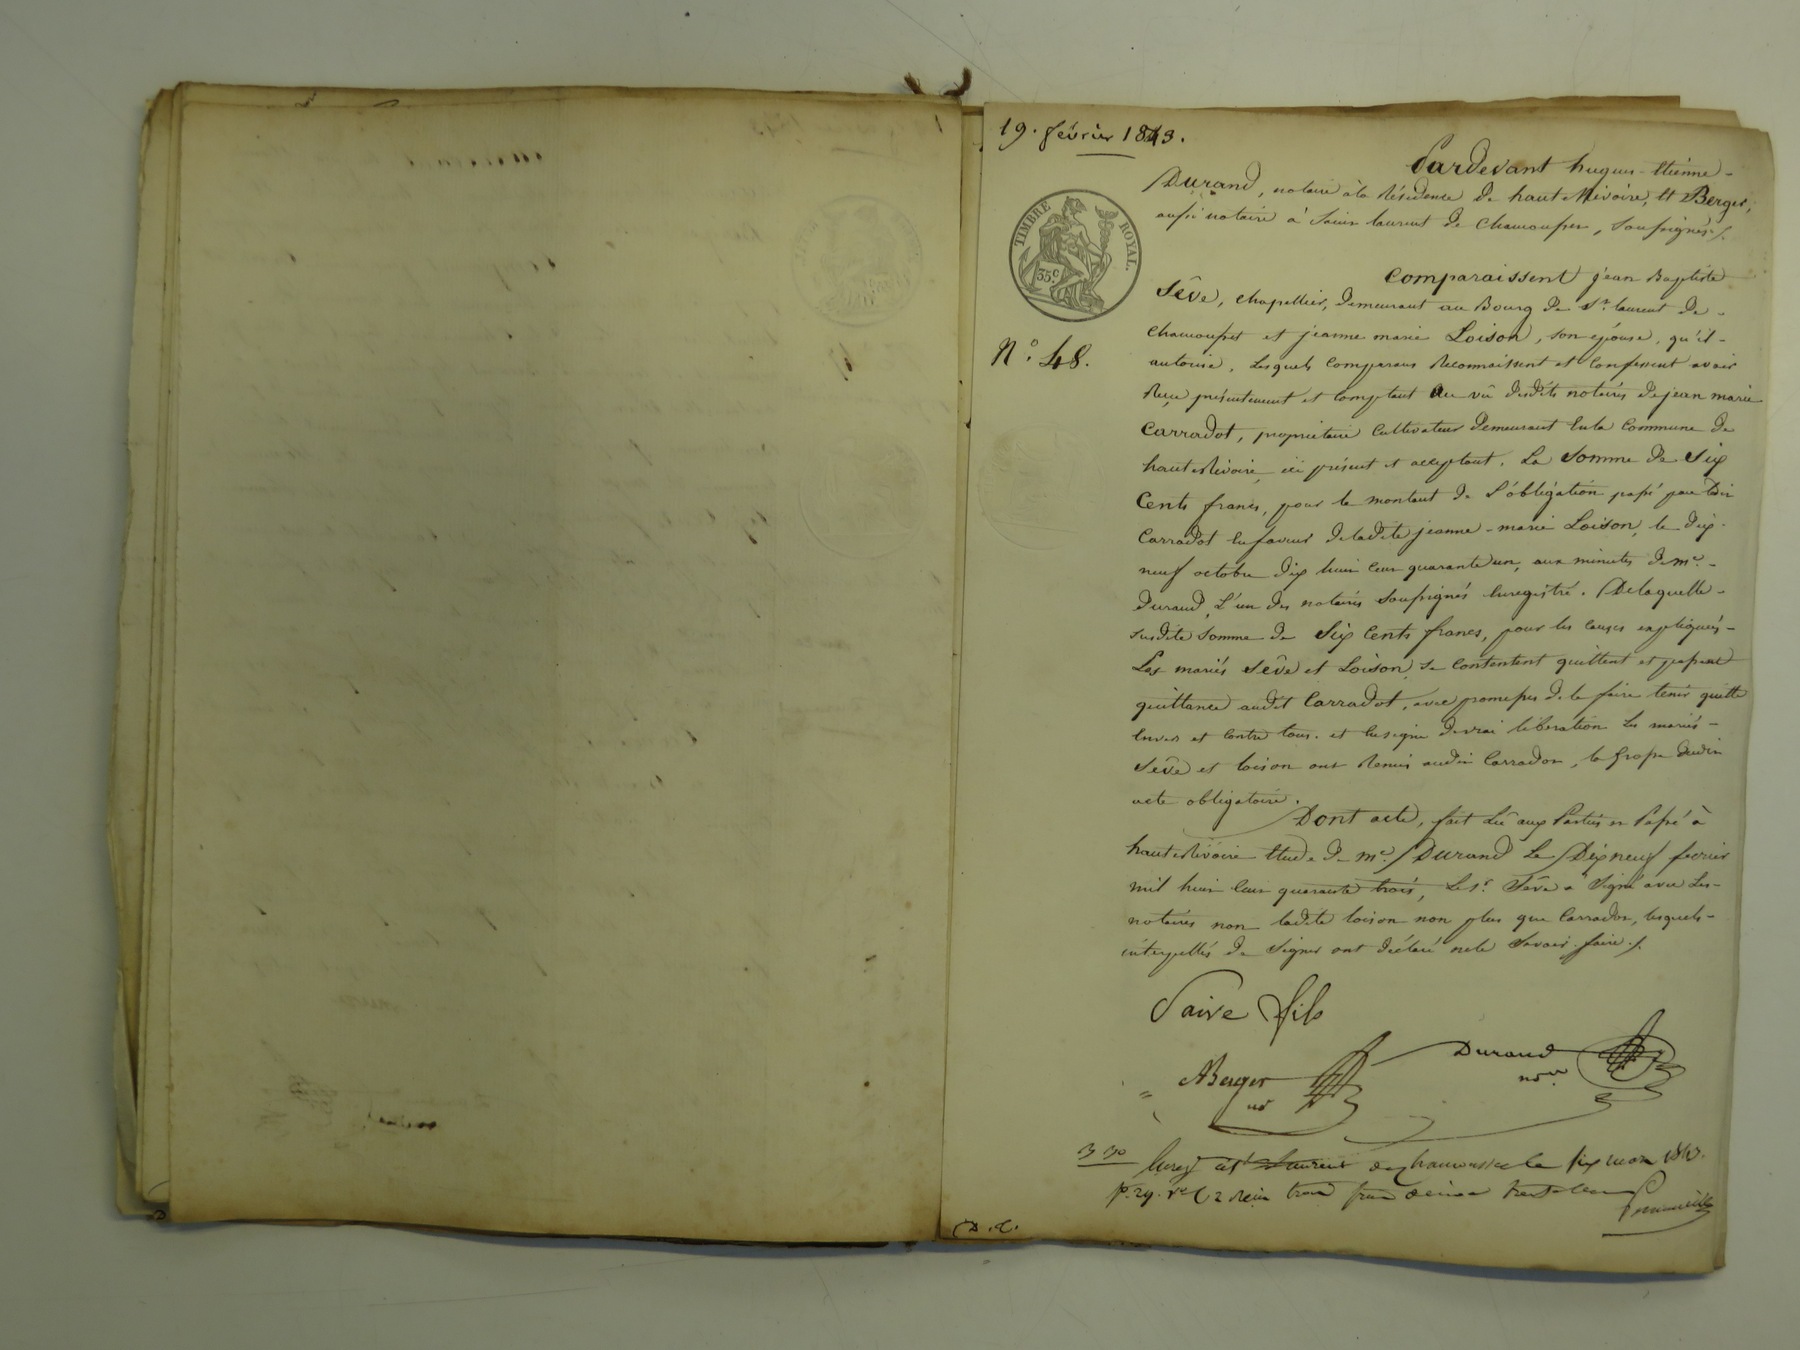 19. février 1843.
Pardevant hugues-Etienne-
Durand, notaire à la Résidence de haute Rivoire, Et Berger,
aussi notaire à Saint laurent de Chamousset, Soussignés/.
TIMBRE ROYAL.
35.c
N.o 48.
Comparaissent jean Baptiste
Sêve, chapellier, Demeurant au Bourg De St. laurent De-
Chamousset et jeanne marie Loison, son épouse, qu'il-
autorise, Lesquels comparans Reconnaissent et Confessent avoir
Reçu présentement et Comptant au vû desdits notaires De jean marie
Carradot, propriétaire Cultivateur Demeurant En la Commune De
haute Rivoire, ici présent et acceptant, La Somme De Six
Cents francs, pour le montant De L'obligation passé par ledit
Carradot En faveur De ladite jeanne-marie Loison, le dix-
neuf octobre dix huit cent quarante un, aux minutes De me.-
Durand, L'un des notaires Soussignés Enregistré. De laquelle-
susdite Somme De Six Cents francs, pour les causes expliquées-
Les mariés Sêve et Loison, se contentent quittent et passent
quittance audit Carradot, avec promesses De le faire tenir quitte
Envers et Contre tous. et En signe De vrai libération Les mariés-
Sêve et loison ont Remis audit Carradot, la grosse dudit
acte obligatoire.
Dont acte, fait Lû aux Parties et Passé à
haute Rivoire Etude De me. Durand Le Dix neuf fevrier
mil huit Cent quarante trois, Le sr. Sêve a Signé avec Les-
notaires non ladite loison non plus que Carradot, lesquels-
interpellés de Signer ont déclaré ne le Savoir faire./.
Saive fils
ABerger
not
Durand
nore
3 30
Enregé à St Laurent de chamousset le six mars 1843.
fo. 29. Vo C 2 Reçu trois francs décime trente centimes
D.C.